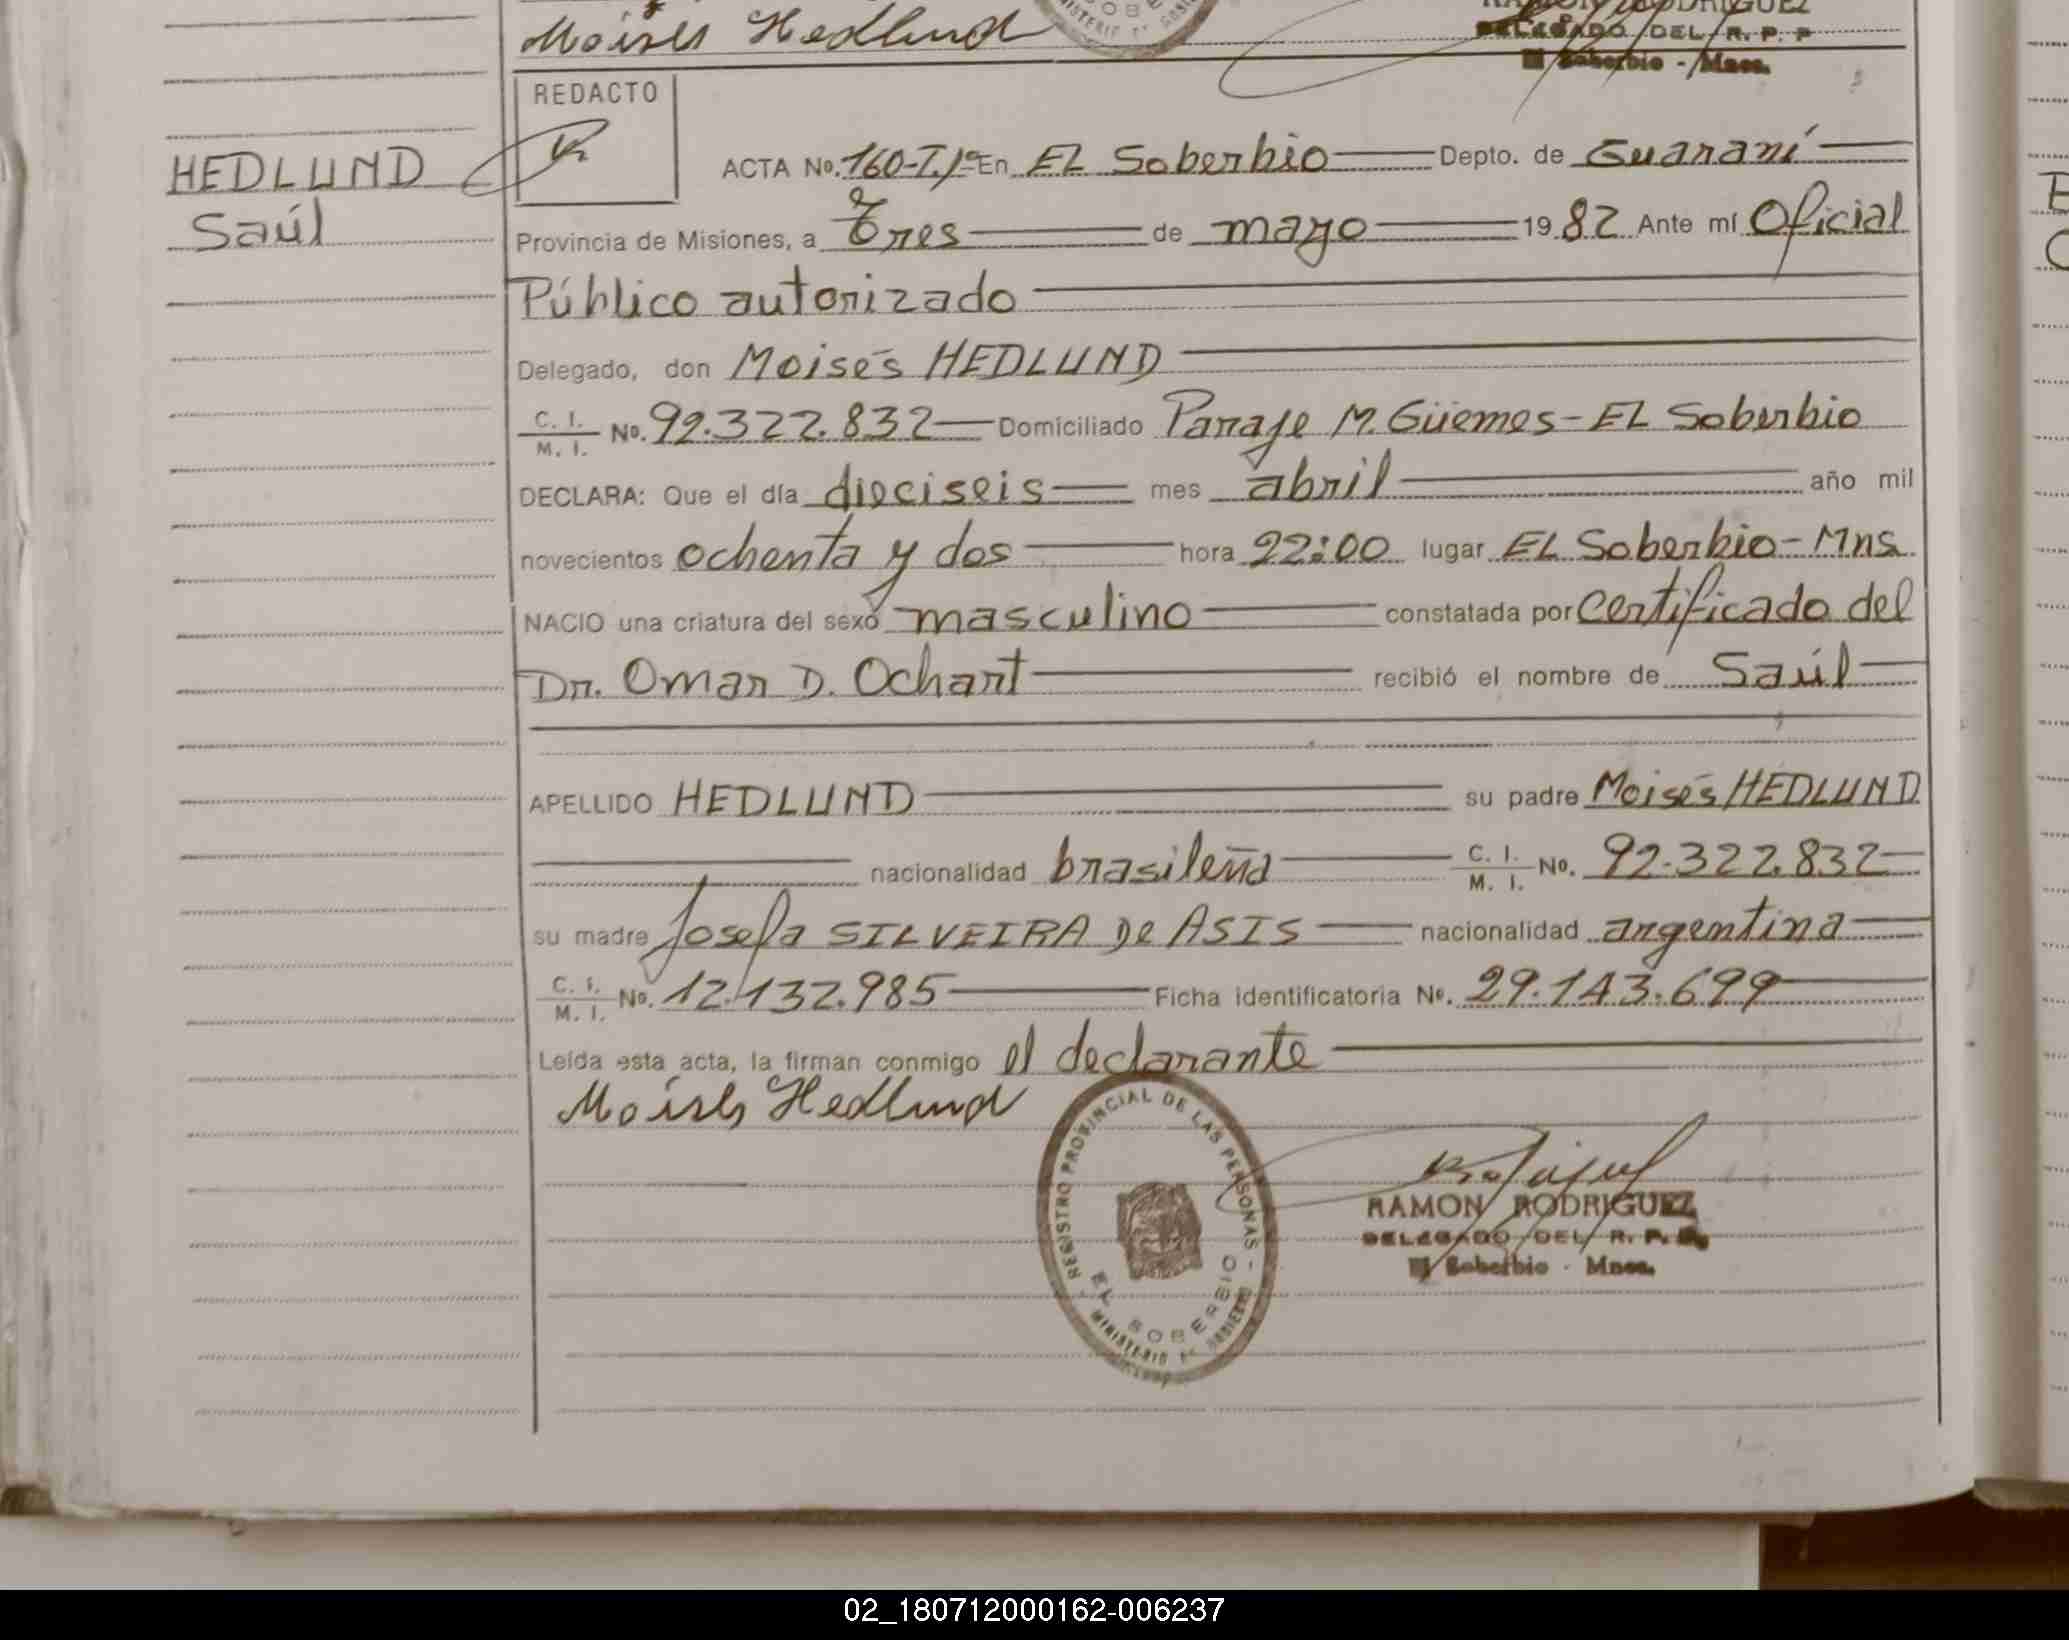 Moisés Hedlund
RAMON RODRIGUEZ
DELEGADO DEL R. P. P
El Soberbio - Mnes.
REDACTO
HEDLUND
Saúl
ACTA No. 160-T.1º En EL Soberbio Depto. de Guaraní
Provincia de Misiones, a Tres de mayo 1982 Ante mí Oficial
Público autorizado
Delegado, don Moisés HEDLUND
C. I.
M. I. No. 92.322.832 Domiciliado Paraje M. Güemes - EL Soberbio
DECLARA: Que el día dieciseis mes abril año mil
novecientos ochenta y dos hora 22:00 lugar EL Soberbio - Mns.
NACIO una criatura del sexo masculino constatada por certificado del
Dr. Omar D. Ochart recibió el nombre de Saúl
APELLIDO HEDLUND su padre Moisés HEDLUND
nacionalidad brasileña C. I. M. I. No. 92.322.832
su madre Josefa SILVEIRA De ASIS nacionalidad argentina
C. I.
M. I. No. 12.132.985 Ficha identificatoria No. 29.143.699
Leída esta acta, la firman conmigo el declarante
Moisés Hedlund
REGISTRO PROVINCIAL DE LAS PERSONAS -
EL SOBERBIO
MINISTERIO DE GOBIERNO
RAMON RODRIGUEZ
DELEGADO DEL R. P. P.
El Soberbio - Mnes.
02_180712000162-006237